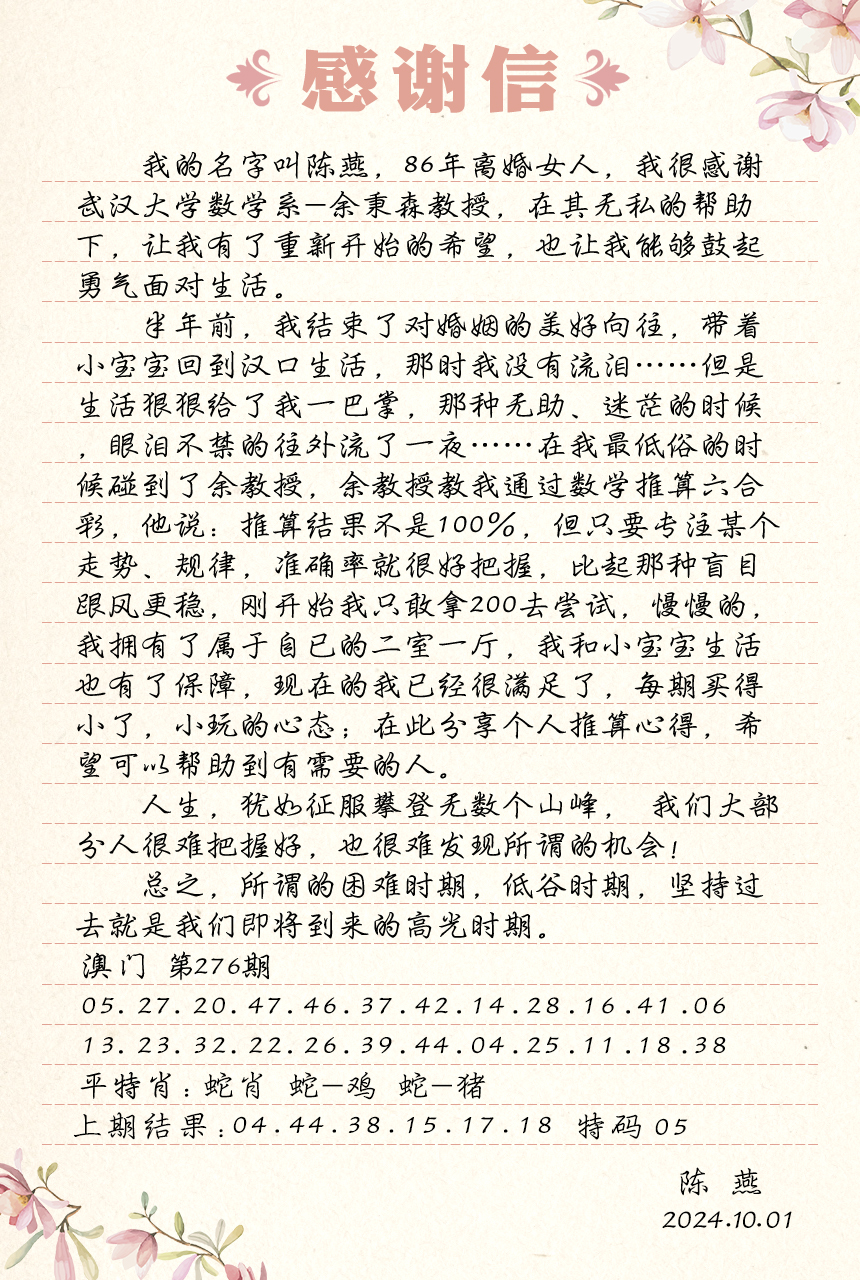 感谢信
我的名字叫陈燕，86年离婚女人，我很感谢
武汉大学数学系—余秉森教授，在其无私的帮助
下，让我有了重新开始的希望，也让我能够鼓起
勇气面对生活。
半年前，我结束了对婚姻的美好向往，带着
小宝宝回到汉口生活，那时我没有流泪……但是
生活狠狠给了我一巴掌，那种无助、迷茫的时候
，眼泪不禁的往外流了一夜……在我最低俗的时
候碰到了余教授，余教授教我通过数学推算六合
彩，他说：推算结果不是100%，但只要专注某个
走势、规律，准确率就很好把握，比起那种盲目
跟风更稳，刚开始我只敢拿200去尝试，慢慢的，
我拥有了属于自己的二室一厅，我和小宝宝生活
也有了保障，现在的我已经很满足了，每期买得
小了，小玩的心态；在此分享个人推算心得，希
望可以帮助到有需要的人。
人生，犹如征服攀登无数个山峰， 我们大部
分人很难把握好，也很难发现所谓的机会！
总之，所谓的困难时期，低谷时期，坚持过
去就是我们即将到来的高光时期。
澳门 第276期
05.27.20.47.46.37.42.14.28.16.41.06
13.23.32.22.26.39.44.04.25.11.18.38
平特肖：蛇肖 蛇—鸡 蛇—猪
上期结果：04.44.38.15.17.18 特码 05
陈 燕
2024.10.01